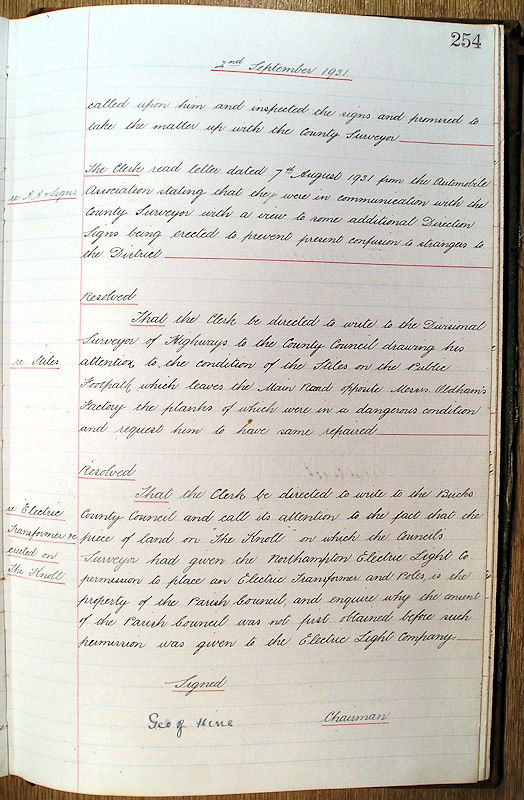 254
2nd September 1931.
called upon him and inspected the signs and promised to
take the matter up with the County Surveyor
The Clerk read letter dated 7th August 1931 from the Automobile
re A.A. Signs
Association stating that they were in communication with the
County Surveyor with a view to some additional Direction
Signs being erected to prevent present confusion to strangers to
the District
Resolved
That the Clerk be directed to write to the Divisional
Surveyor of Highways to the County Council drawing his
re Stiles
attention to the condition of the Stiles on the Public
Footpath which leaves the Main Road opposite Messrs Oldham's
Factory the planks of which were in a dangerous condition
and request him to have same repaired
Resolved
That the Clerk be directed to write to the Bucks
re Electric
County Council and call its attention to the fact that the
Transformer &c
piece of land on The Knoll on which the Councils
erected on
Surveyor had given the Northampton Electric Light Co.
The Knoll
permission to place an Electric Transformer and Poles, is the
property of the Parish Council, and enquire why the consent
of the Parish Council was not first obtained before such
permission was given to the Electric Light Company.
Signed
Geo J Hine
Chairman